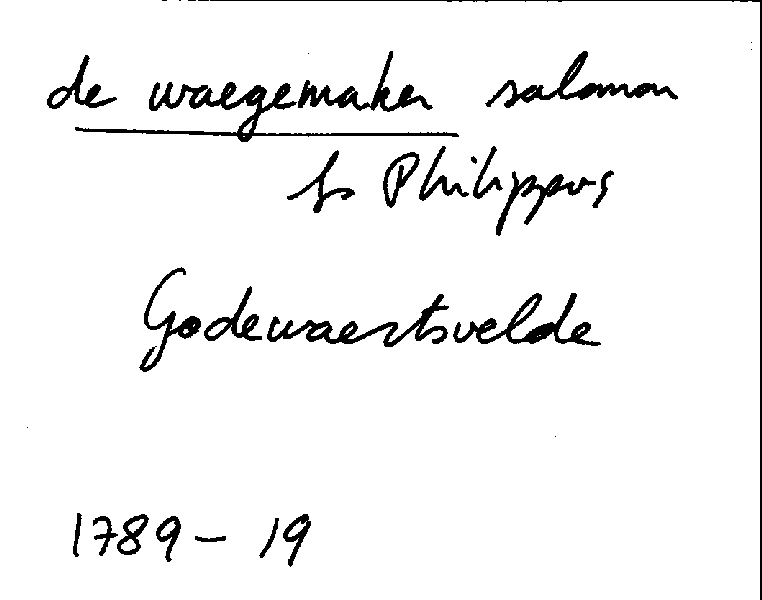 de waegemaker salomon
fs Philippus
Godewaertsvelde
1789 - 19